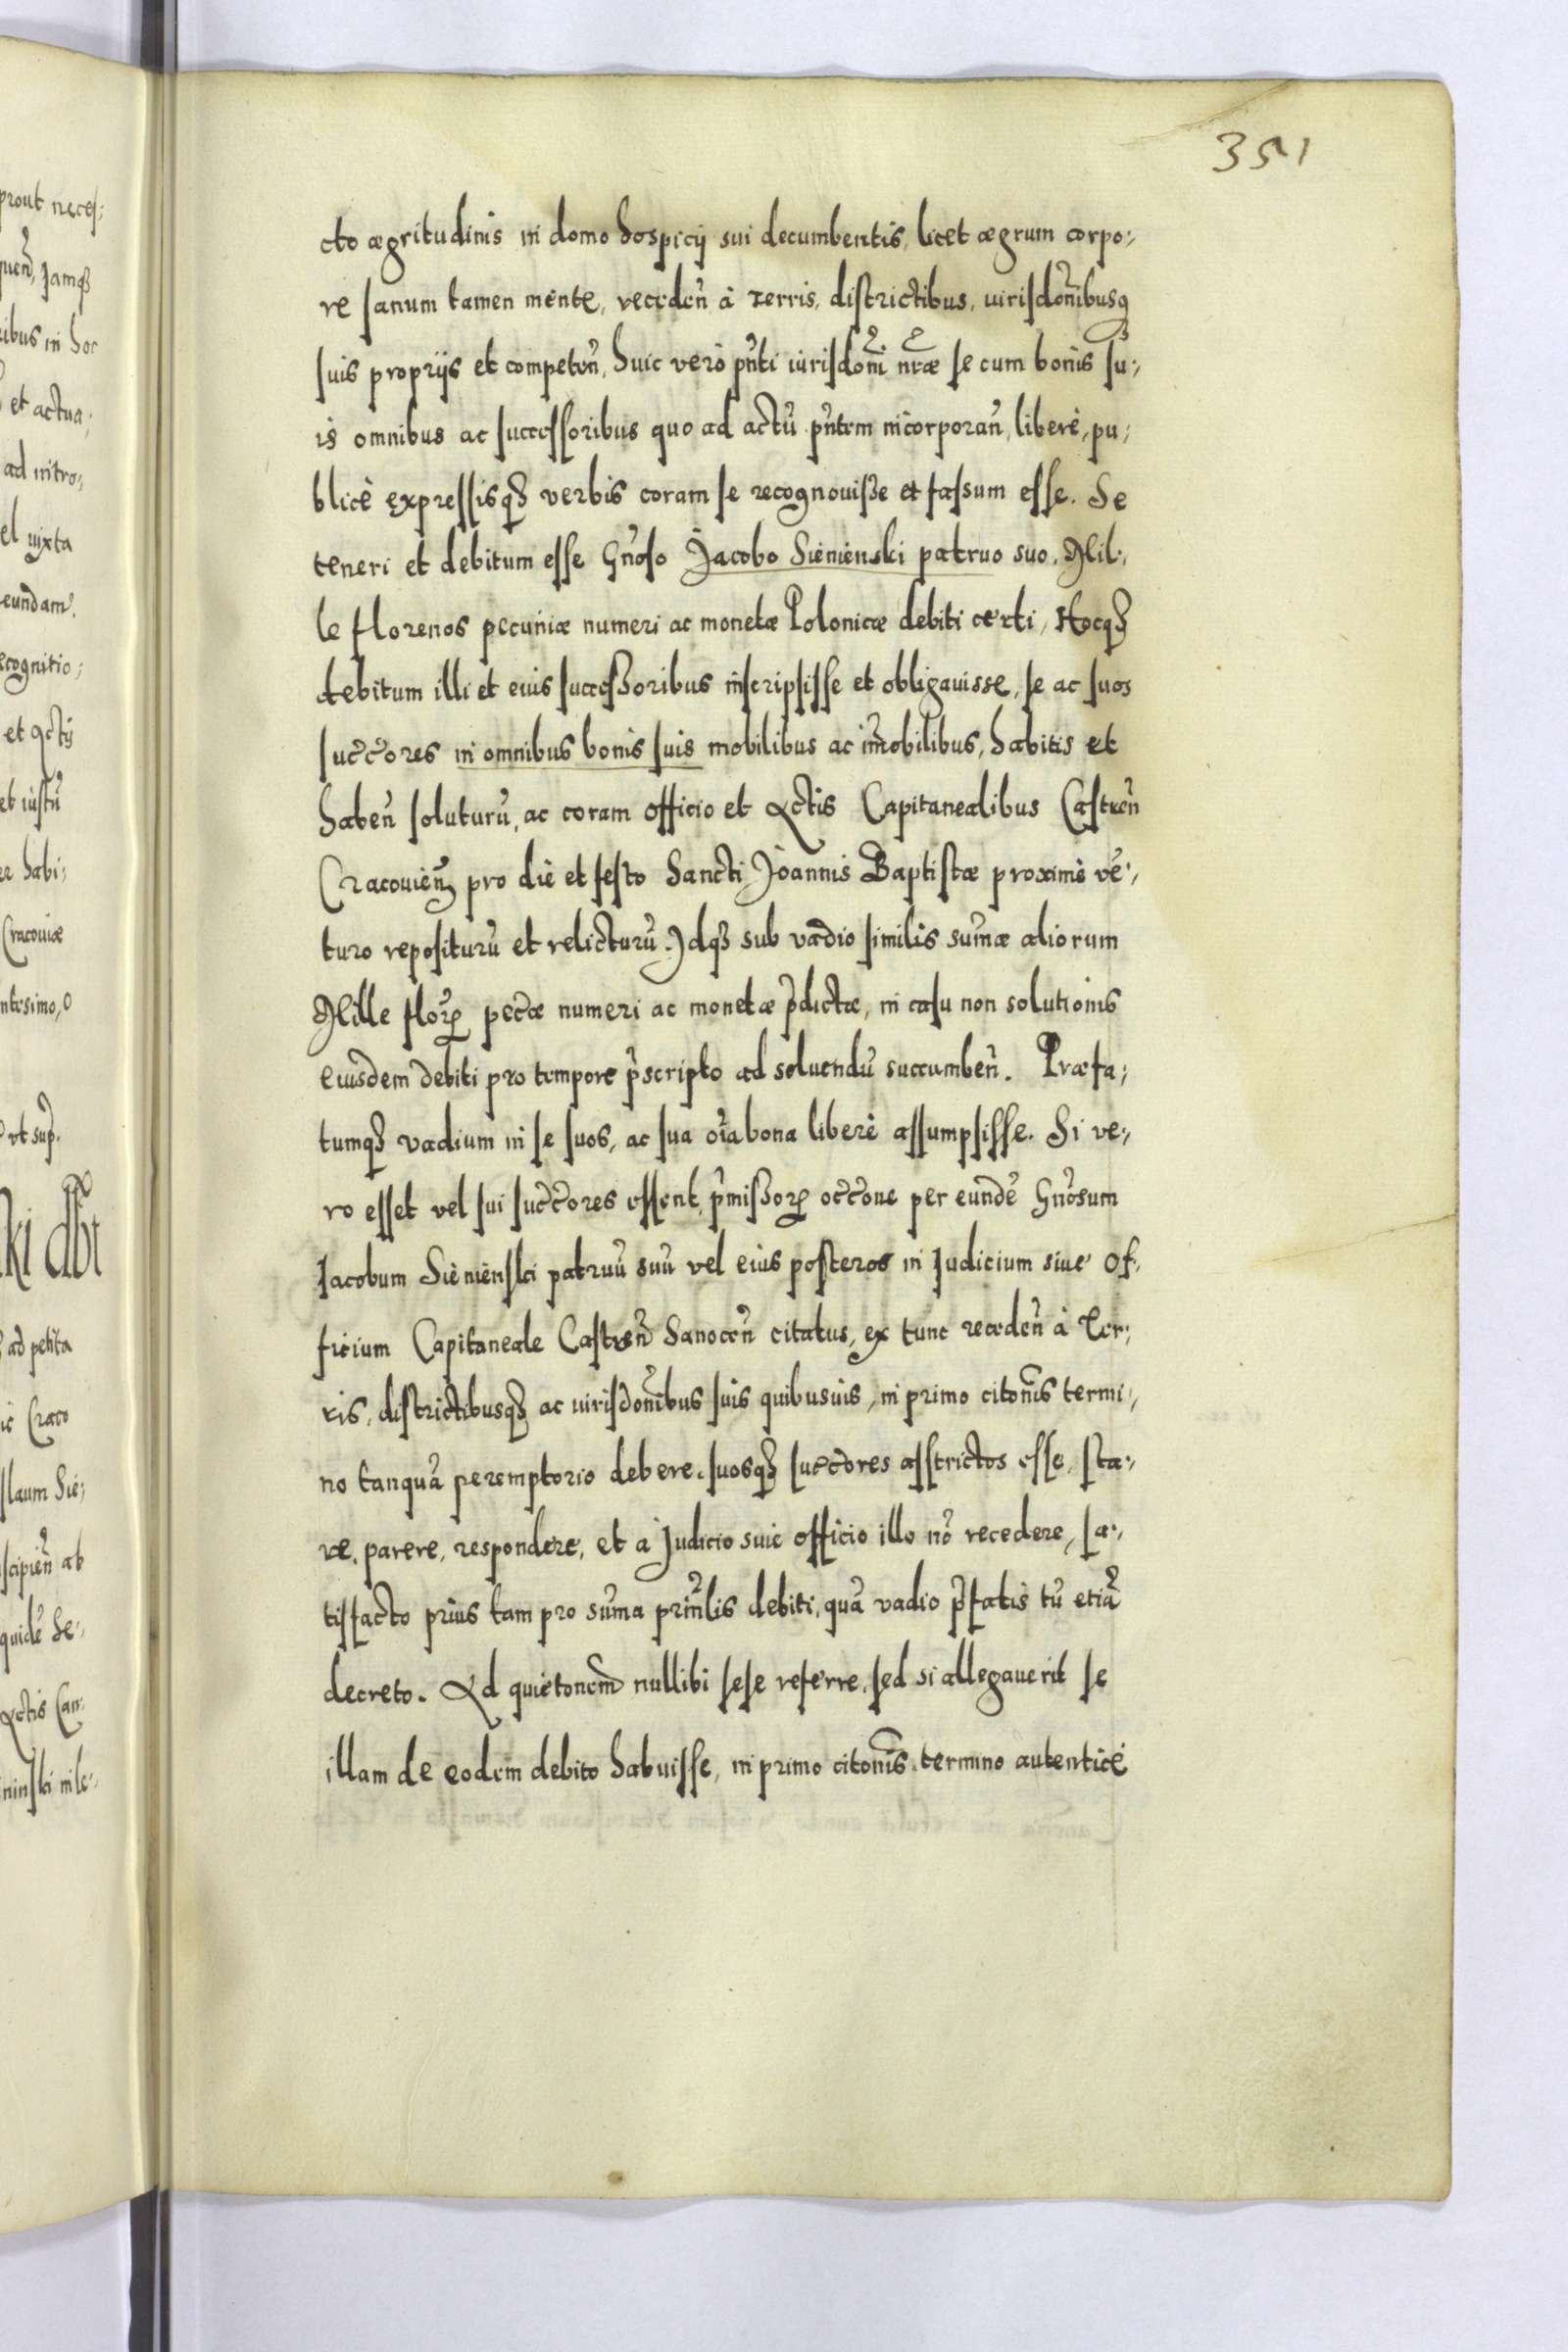 351
cto ægritudinis in domo hospicij sui decumbentis, licet ægrum corpo:
re sanum tamen mente, recedeñ à terris, districtibus, iurisdonibusq3
suis proprijs et competeñ, huic verò pñti iurisdoni nræ se cum bonis su:
is omnibus ac successoribus quo ad actũ pñtem incorporañ, liberè, pu:
blicè expressisq3 verbis coram se recognouisse et fassum esse. Se
teneri et debitum esse Gñoso Jacobo Sienienski patruo suo, Mil:
le florenos pecuniæ numeri ac monetæ Polonicæ debiti certi, Hocq3
debitum illi et eius successoribus inscripsisse et obligauisse, se ac suos
succores in omnibus bonis suis mobilibus ac im̃obilibus, habitis et
habeñ soluturũ, ac coram officio et Actis Capitanealibus Castreñ
Cracouieñ pro die et festo Sancti Joannis Baptistæ proximè vẽ:
turo repositurũ et relicturũ. Idq3 sub vadio similis sum̃æ aliorum
Mille flor̃ pecc̃æ numeri ac monetæ p̃dictæ, in casu non solutionis
eiusdem debiti pro tempore p̃scripto ad soluendũ succumbeñ. Præfa:
tumq3 vadium in se suos, ac sua oĩa bona liberè assumpsisse. Si ve:
ro esset vel sui succores essent, p̃missor̃ occone per eundẽ Gñosum
Jacobum Sienienski patruũ suũ vel eius posteros in Judicium siue of:
ficium Capitaneale Castreñ Sanoceñ citatus, ex tunc recedeñ à Ter:
ris, districtibusq3 ac iurisdonibus suis quibusuis, in primo citonis termi:
no tanquã peremptorio debere, suosq3 succores asstrictos esse, sta:
re, parere, respondere, et à Judicio siue officio illo nõ recedere, sa:
tisfacto prius tam pro sum̃a prinlis debiti, quã vadio p̃fatis tũ etiã
decreto. Ad quietonem nullibi sese referre, sed si allegauerit se
illam de eodem debito habuisse, in primo citonis termino autenticè